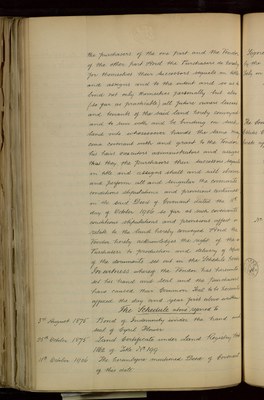 the Purchasers of the one part and the Vendor
of the other part And the Purchasers do hereby
for themselves their successors sequels in title
and assigns and to the intent and so as to
bind not only themselves personally but also
(so far as practicable) all future owners
and tenants of the said land hereby conveyed
and to run with and be binding on such
land into whosesoever hands the same may
come covenant with and grant to the Vendor
his heirs executors administrators and assigns
that they the Purchasers their successors sequels
in title and assigns shall and will observe
and perform all and singular the covenants
conditions stipulations and provisions contained
in the said Deed of Covenant dated the
day of October 1906 so far as such covenants
conditions stipulations and provisions affect or
relate to the land hereby conveyed And the
Vendor hereby acknowledges the right of the
Purchasers to production and delivery of copies
of the documents set out in the Schedule hereto
In witness whereof the Vendor has hereunto
set his hand and seal and the Purchasers
have caused their Common Seal to be hereunto
affixed the day and year first above written
The Schedule above referred to
August 1875 Bond of Indemnity under the hand and
seal of Cyril Flower
October 1875 Land Certificate under Land Registry
of Title No
October 1906 The beforementioned Deed of Covenant
of this date